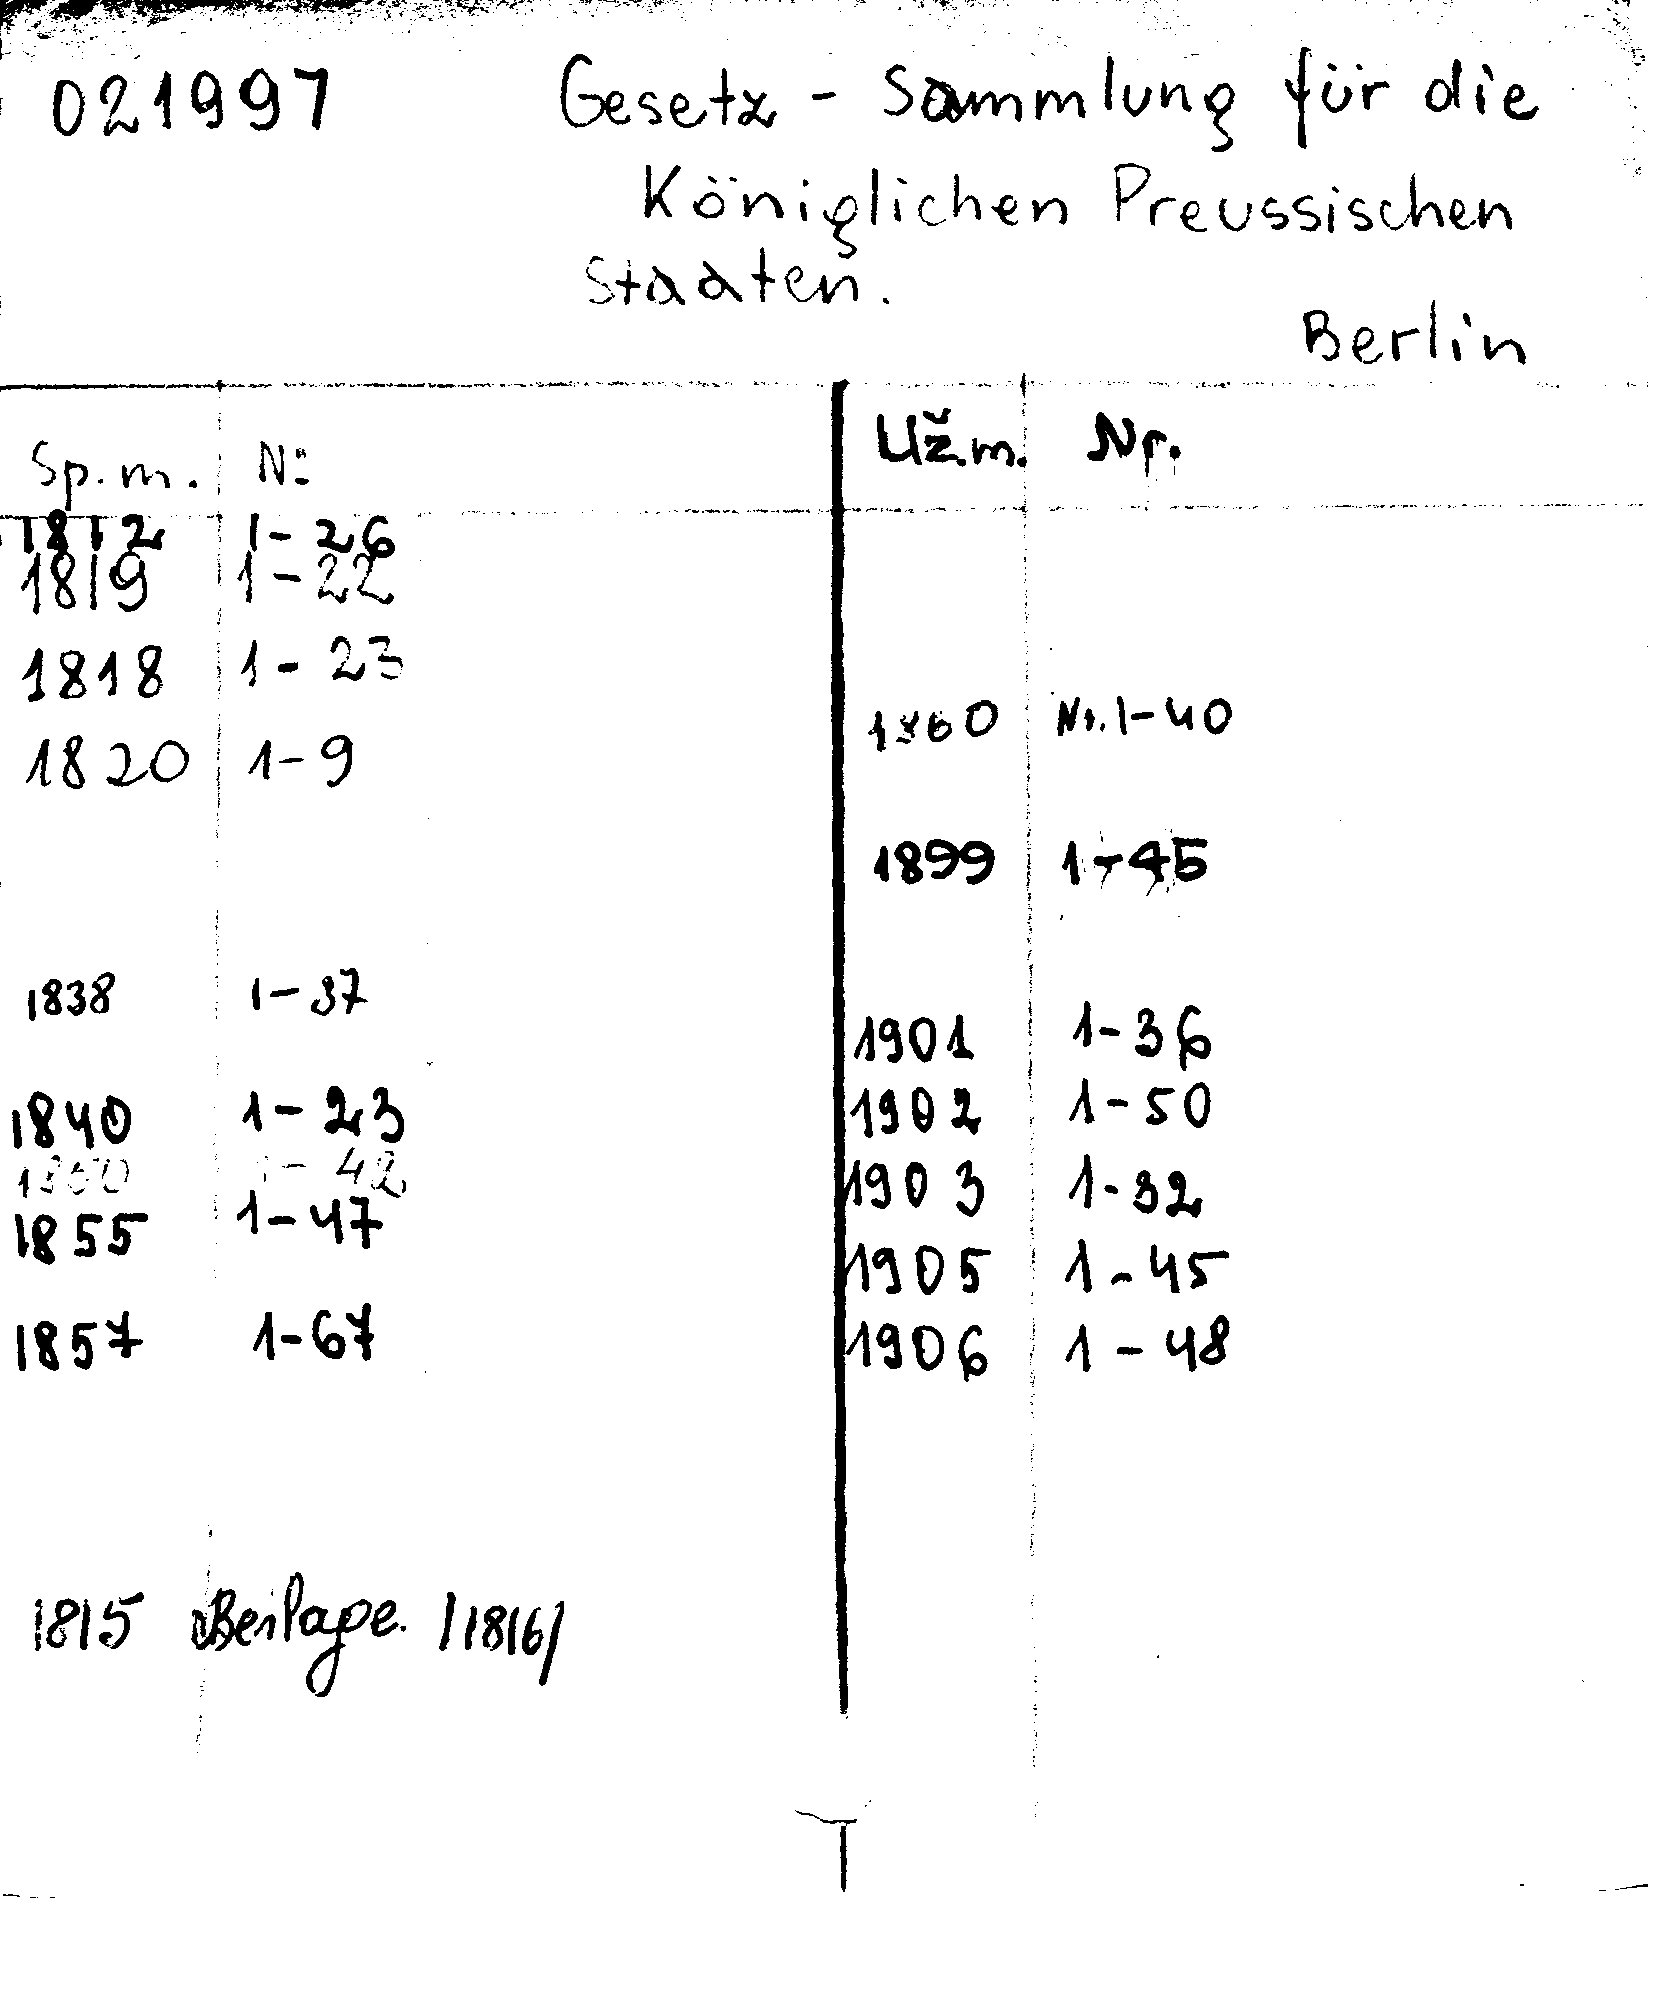 021997 Gesetz - Sammlung für die
Königlichen Preussischen
Staaten.
Berlin
Sp.m. N:
1812 1-26
1819 1-22
1818 1-23
1820 1-9
1838 1-37
1840 1-23
1850 1-42
1855 1-47
1857 1-67
1815 Beilage. /1816/
Už.m. Nr.
1860 Nr. 1-40
1899 1-45
1901 1-36
1902 1-50
1903 1-32
1905 1-45
1906 1-48